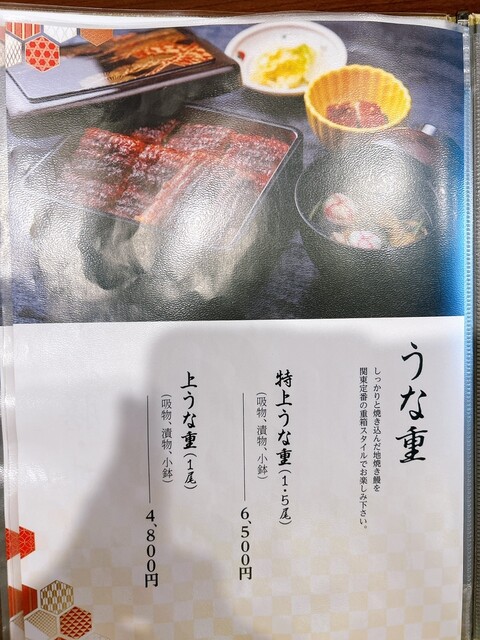 うな重
しっかりと焼き込んだ地焼き鰻を
関東定番の重箱スタイルでお楽しみ下さい。
特上うな重(1.5尾)
(吸物、漬物、小鉢)
6,500円
上うな重(1尾)
(吸物、漬物、小鉢)
4,800円